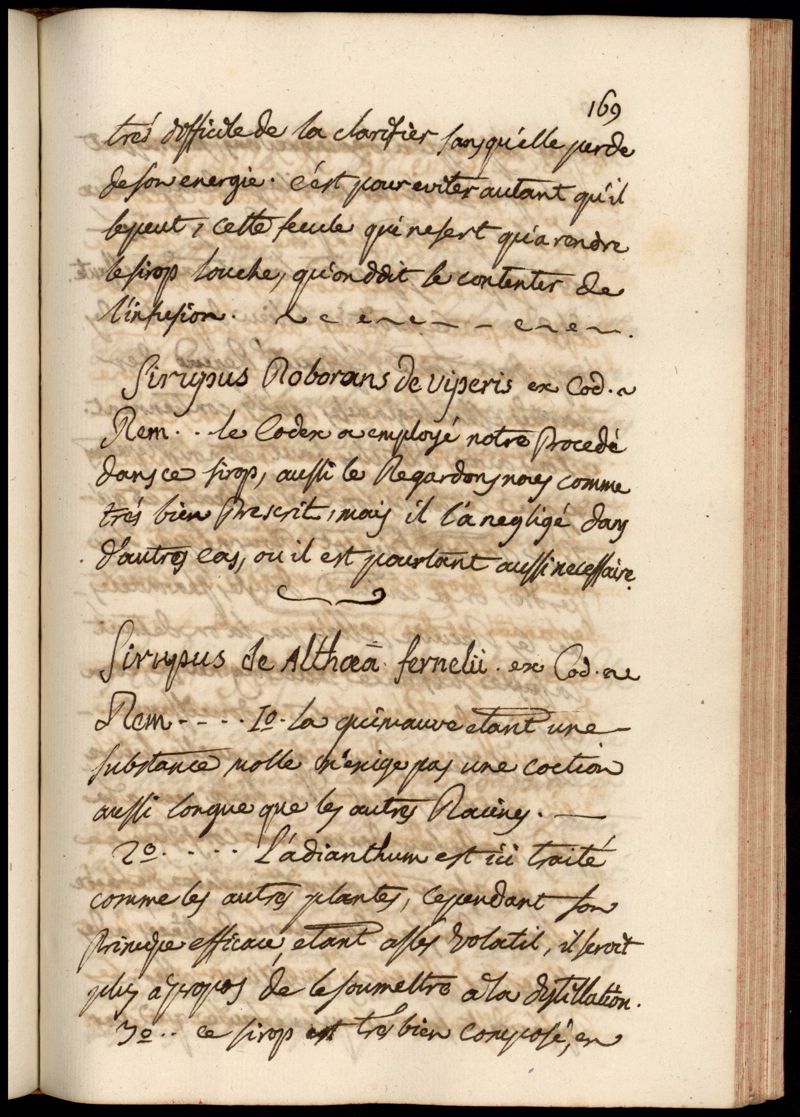 169
trés difficile de la clarifier sans qu'elle perde
de son energie. c'est pour eviter autant qu'il
se peut, cette fecule qui ne sert qu'a rendre
le sirop louche, qu'on doit se contenter de
l'infusion.
Sirupus Roborans de viperis ex Cod.
Rem. .. le Codex a employé notre Procedé
dans ce sirop, aussi le Regardons nous comme
trés bien Prescrit, mais il l'a negligé dans
d'autres cas, ou il est pourtant aussi necessaire.
Sirupus de Althœâ fernelii. ex Cod.
Rem - - - - 1o. la guimauve etant une
substance molle n'exige pas une coction
aussi longue que les autres Racines.
2o. - - - - L'adianthum est ici traité
comme les autres plantes, cependant son
Principe efficace, etant assés volatil, il seroit
plus apropos de le soumettre a la distillation.
3o.. ce sirop est tres bien composé, en